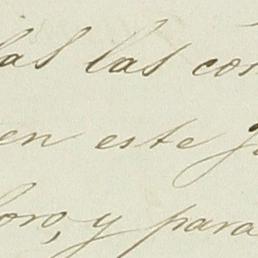 las las con
en este
oro, y para